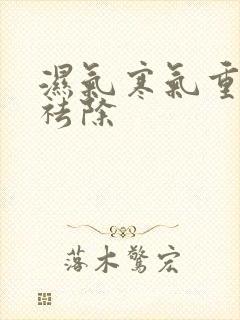 濕氣寒氣重
祛除
落木驚宏